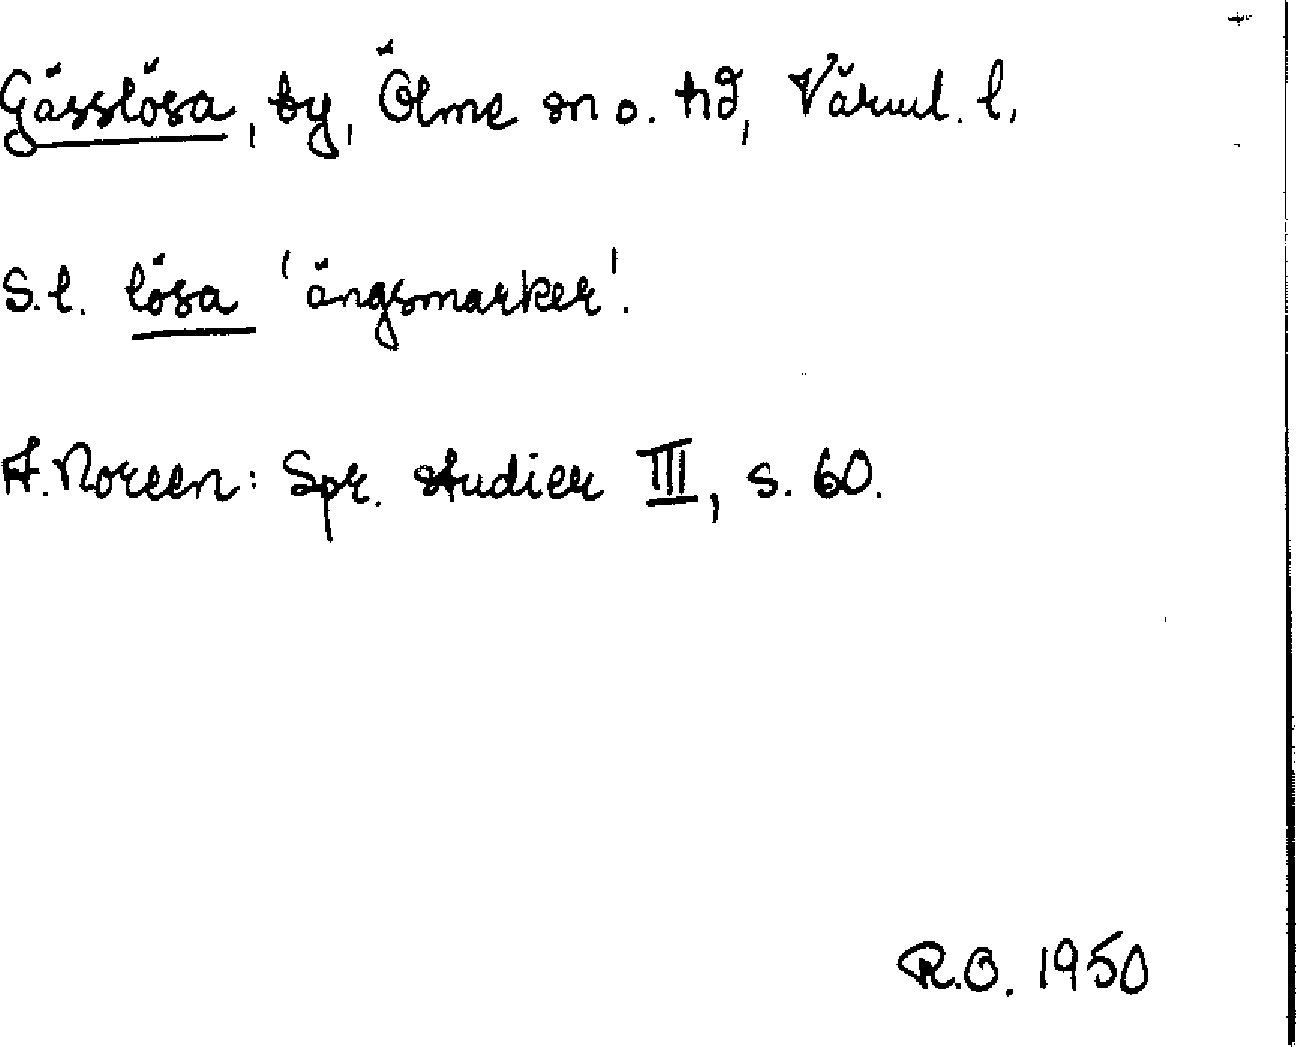 Gässlösa, by, Ölme sn o. hd, Värml. l.
S.l. lösa 'ängsmarker'.
A. Noreen: Spr. studier III, s. 60.
R.O. 1950